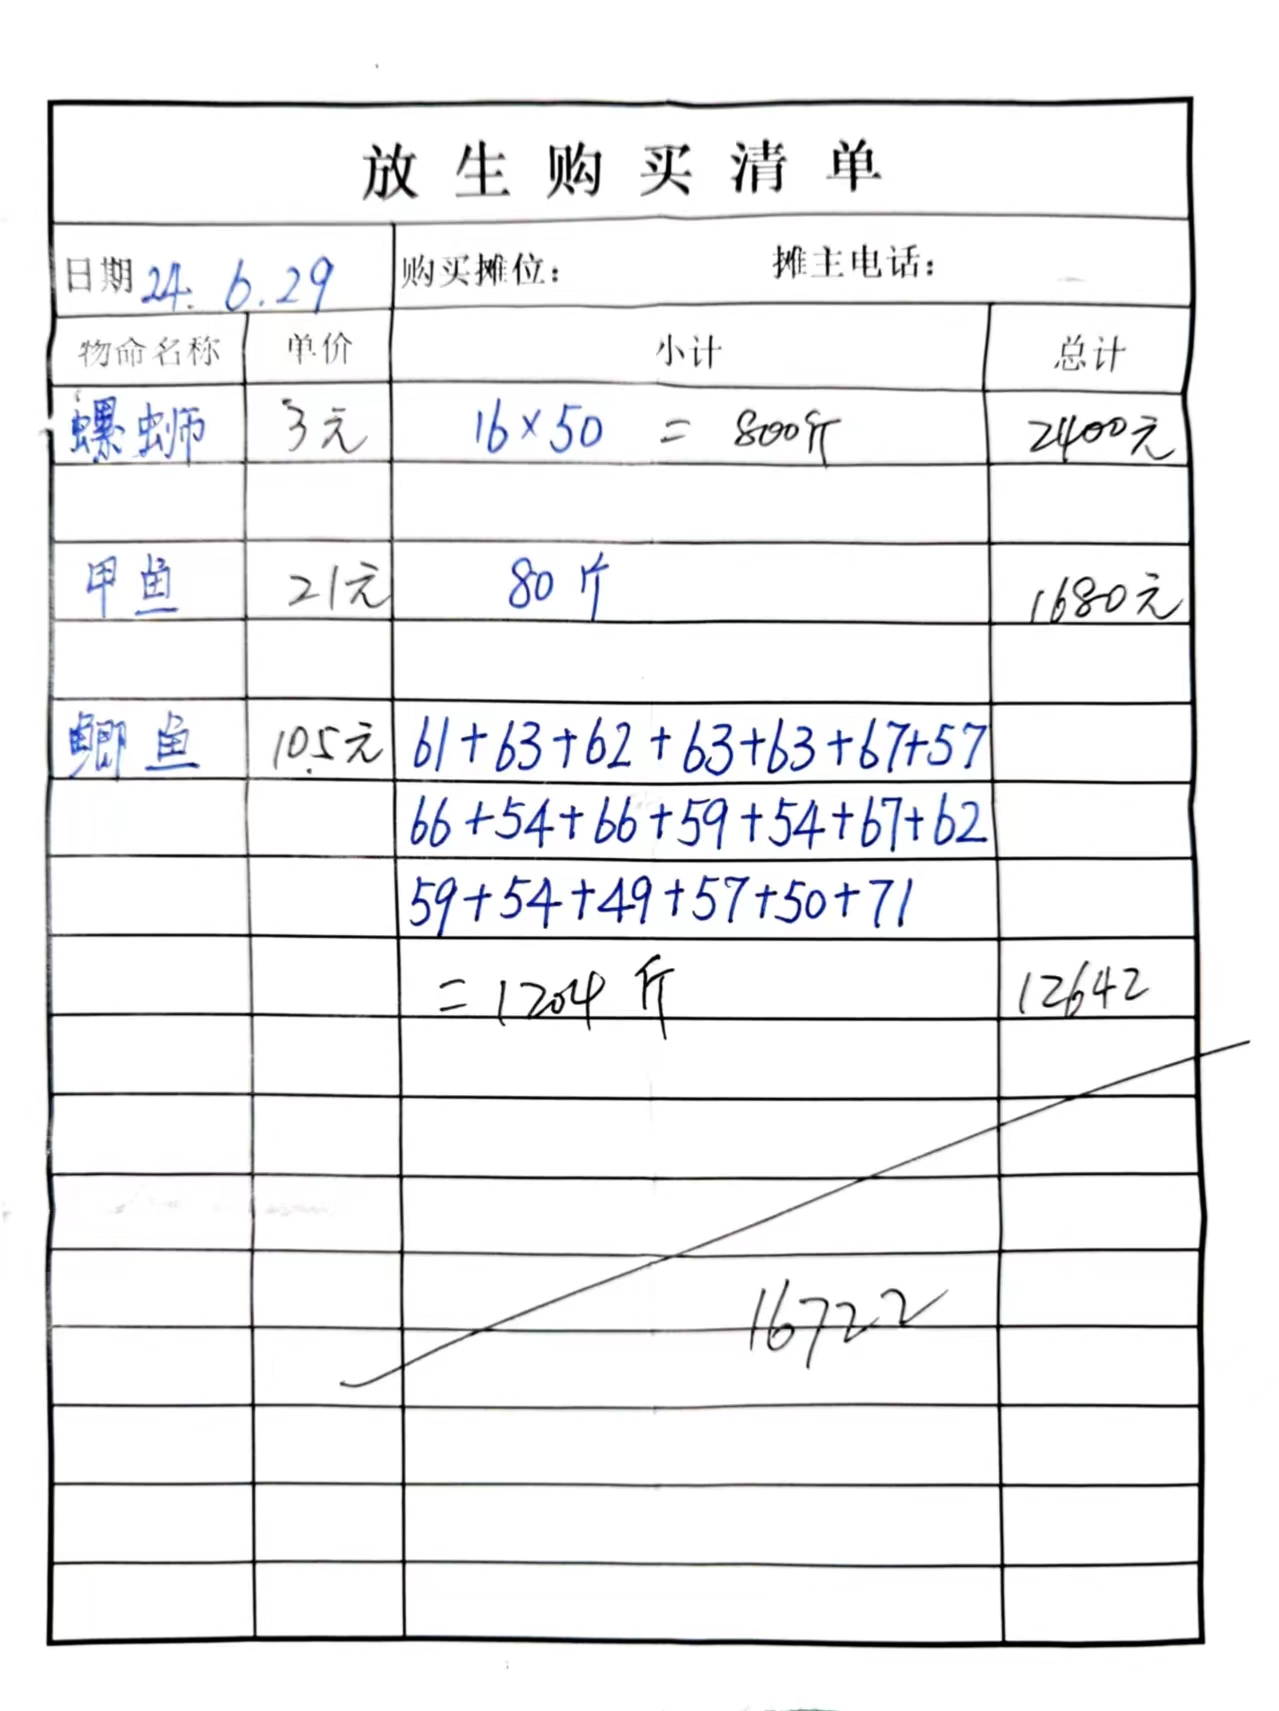 放生购买清单
日期 24.6.29 购买摊位： 摊主电话：
物命名称 单价 小计 总计
螺蛳 3元 16×50 = 800斤 2400元
甲鱼 21元 80斤 1680元
鲫鱼 10.5元 61+63+62+63+63+67+57
66+54+66+59+54+67+62
59+54+49+57+50+71
=1204斤 12642
16722